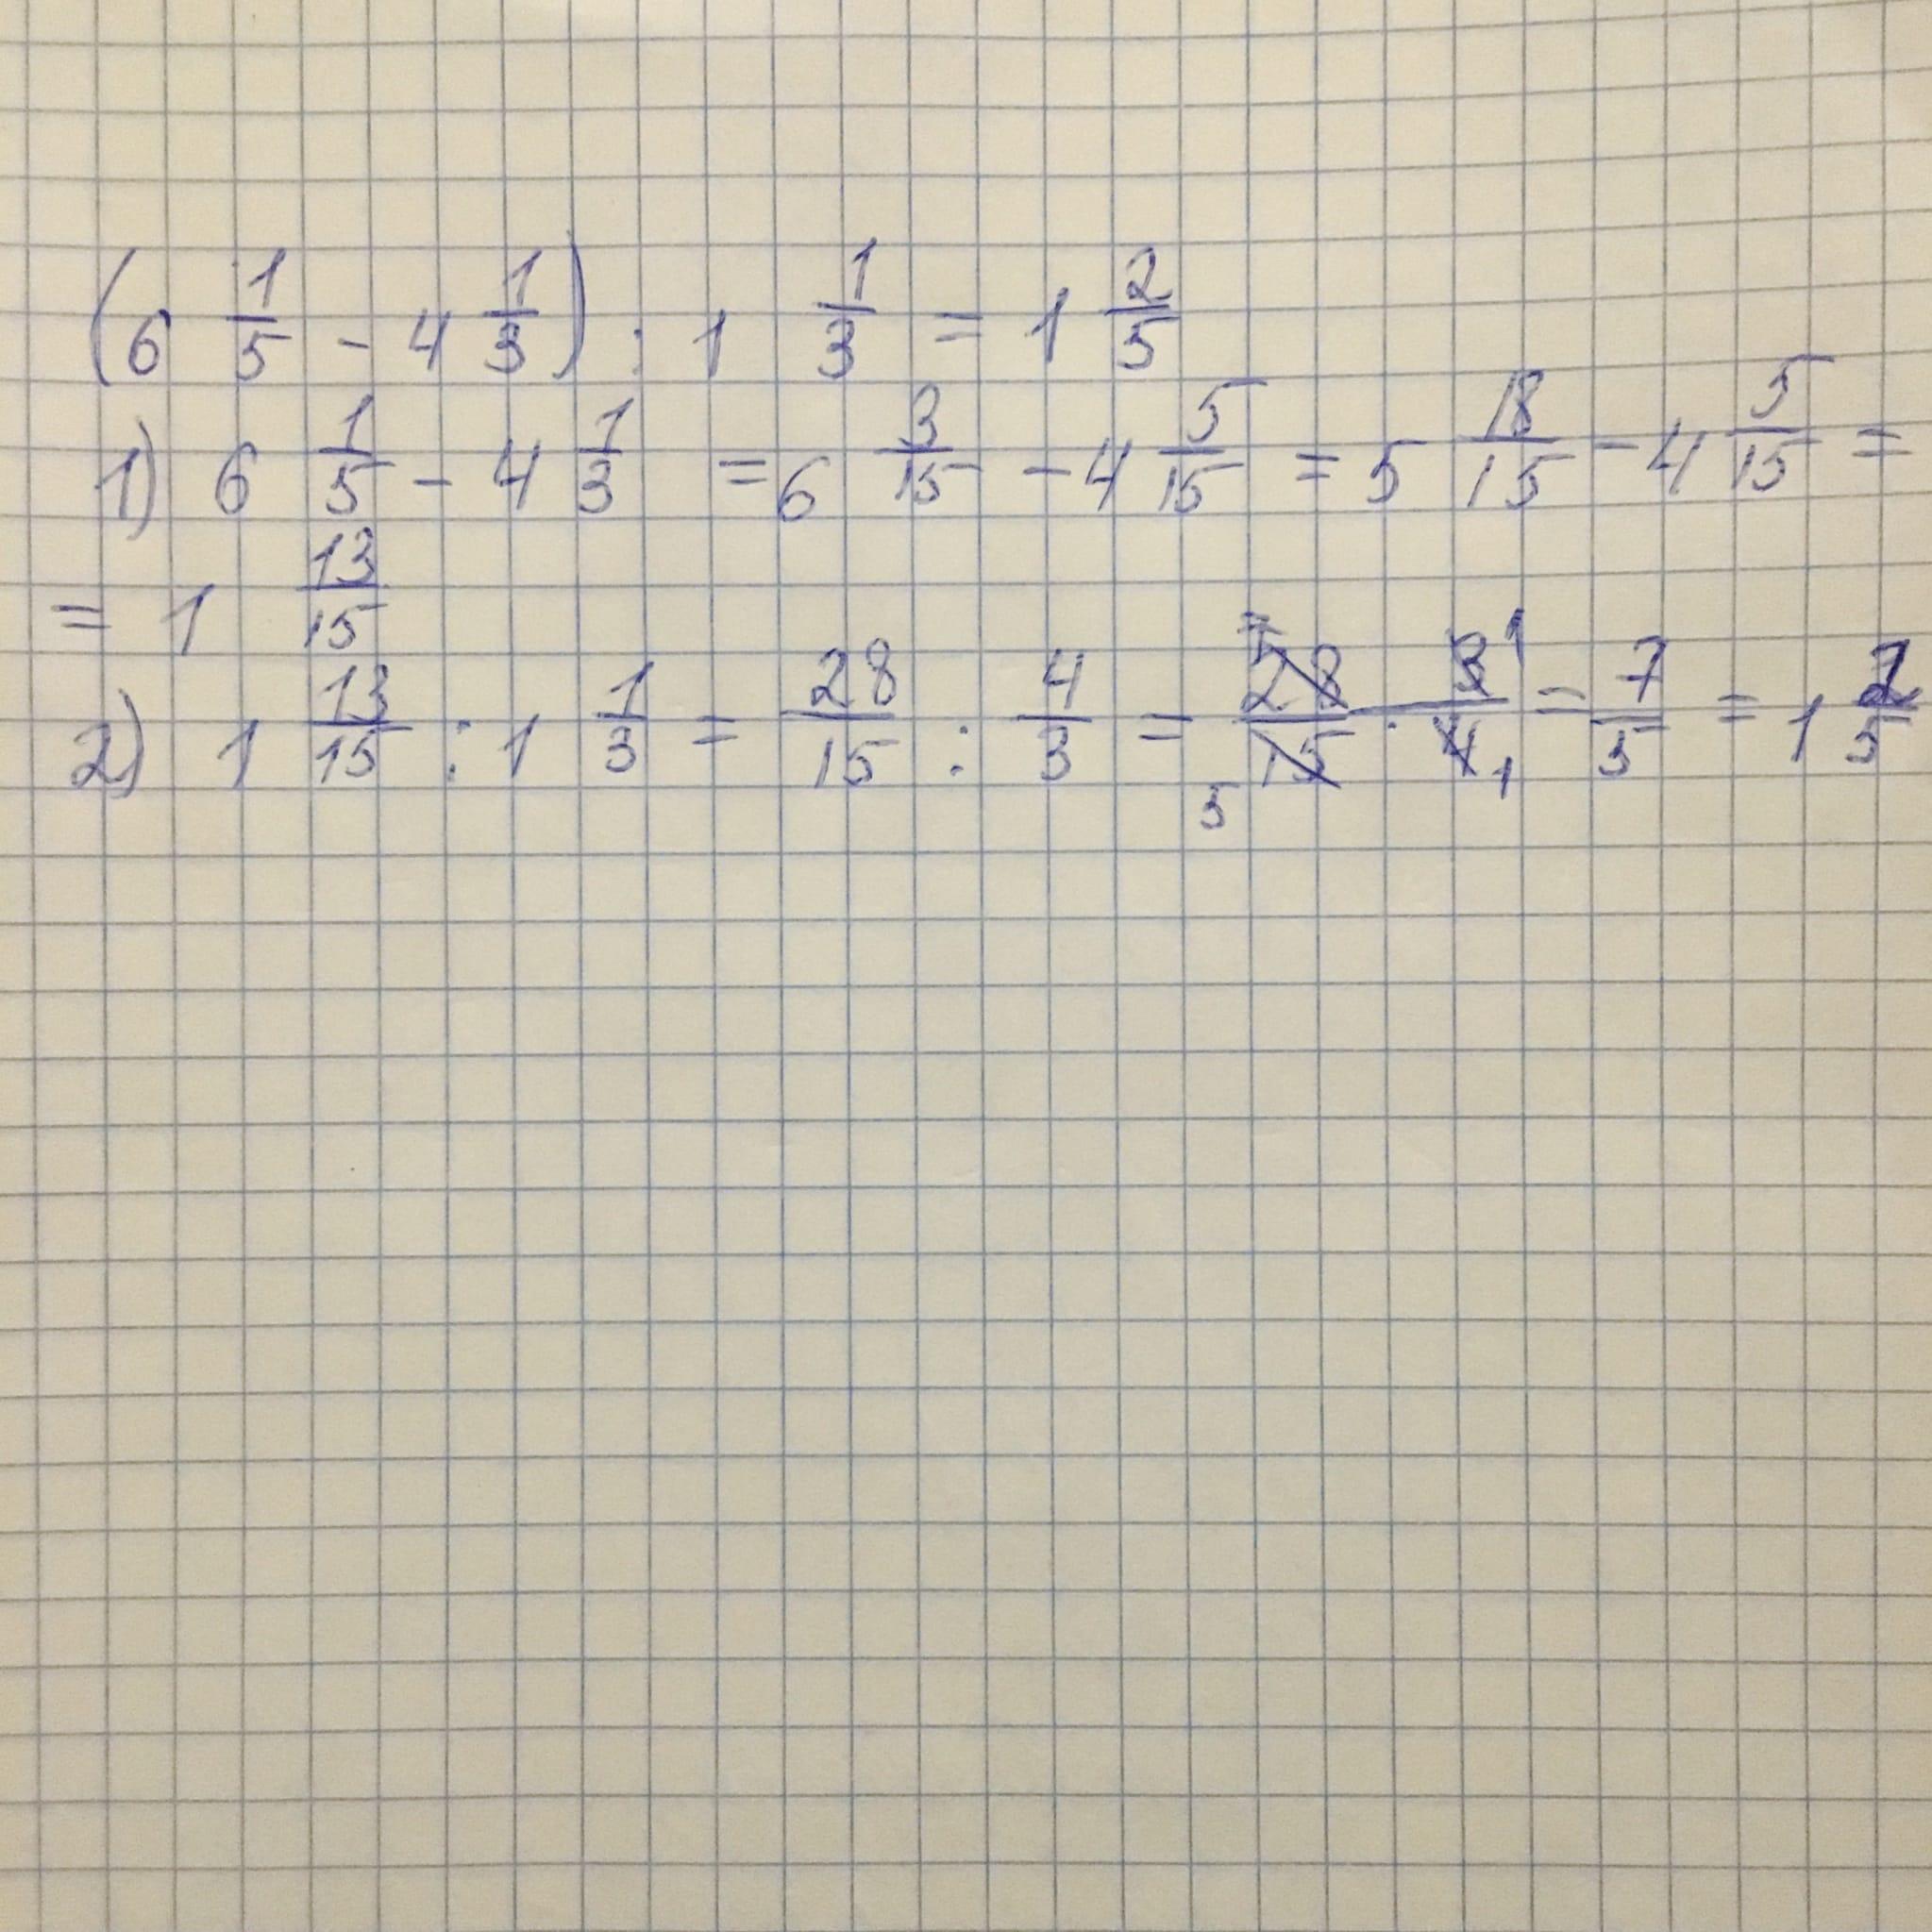 (6 1/5 - 4 1/3) : 1 1/3 = 1 2/5
1) 6 1/5 - 4 1/3 = 6 3/15 - 4 5/15 = 5 18/15 - 4 5/15 =
= 1 13/15
2) 1 13/15 : 1 1/3 = 28/15 : 4/3 = 7 28/15 5 · 3 1/4 1 = 7/5 = 1 2/5